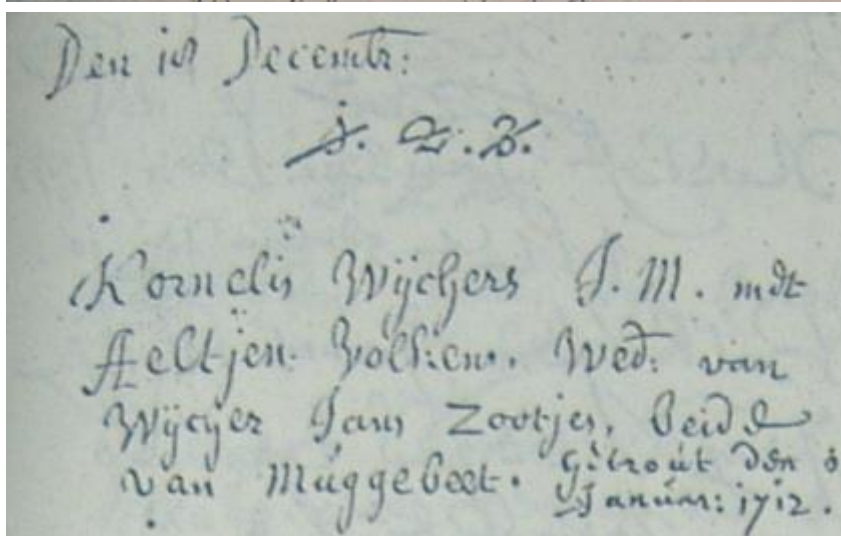 Den 18 Decembr:
Kornelis Wijchers J. M. mdt
Aeltjen. Wed: van
Jans Zootjes, beide
van Muggebeet. Getrout den 8
Januar: 1712.